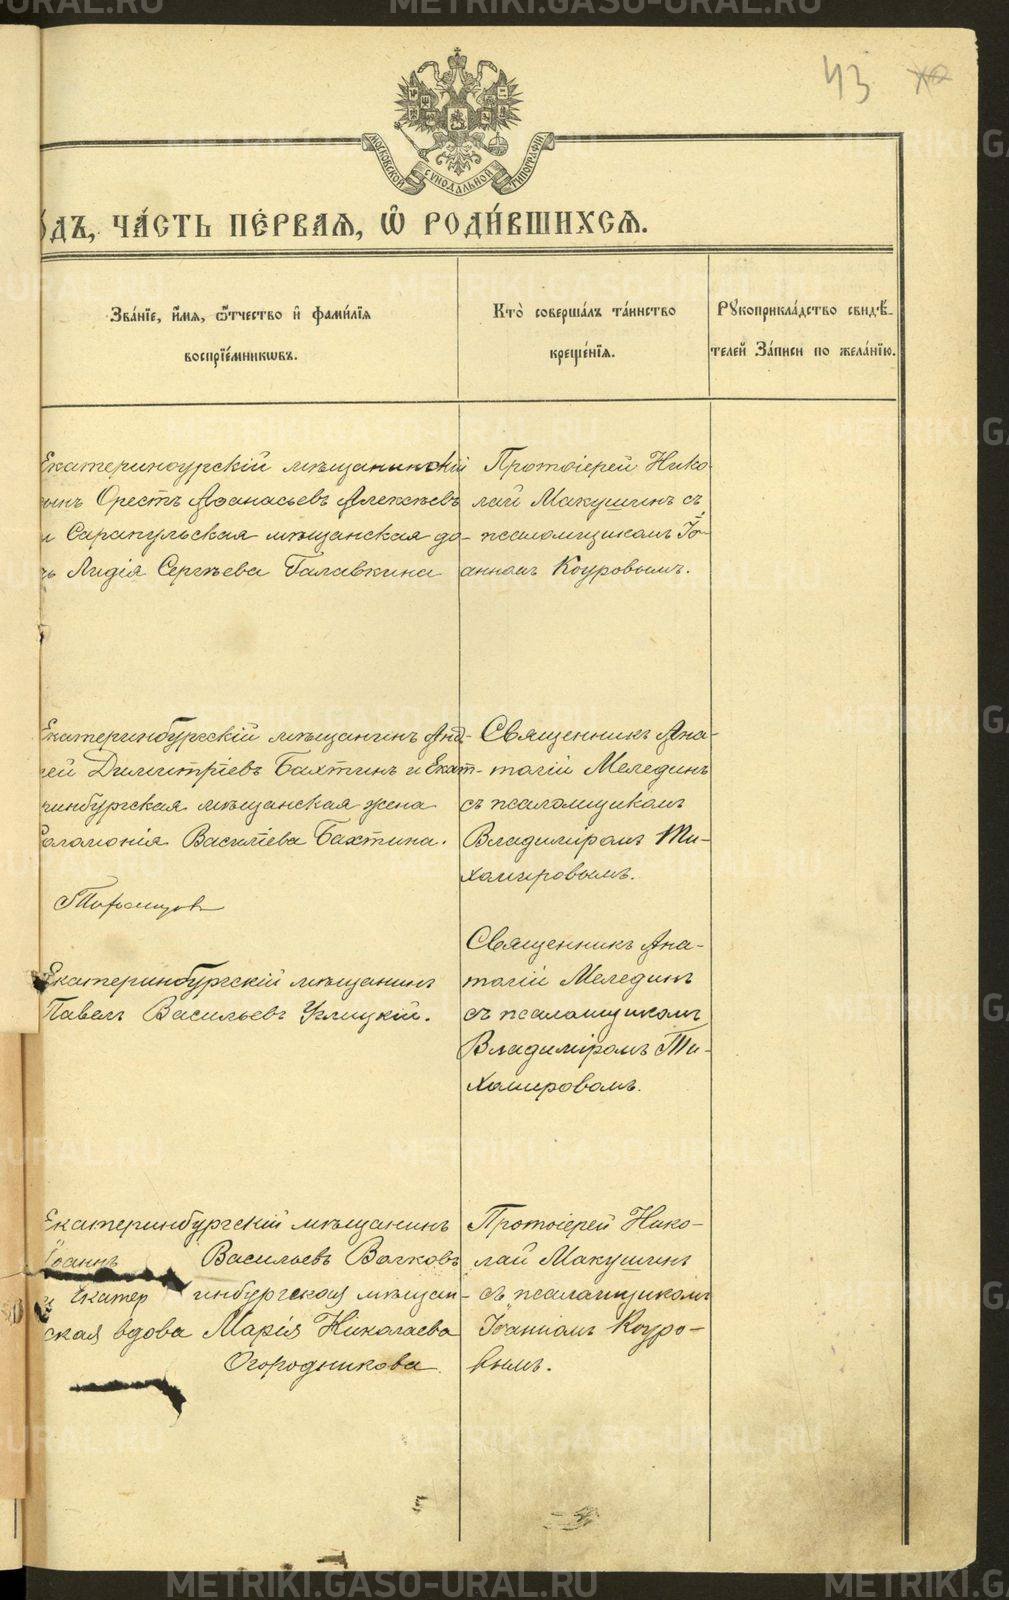 43
МОСКОВСКОЙ СѴНОДАЛЬНОЙ ТИПОГРАФІИ
ѻ́дъ, ча́сть пе́рваѧ, ѡ҆ роди́вшихсѧ.
Зва́нїе, и҆́мѧ, ѻ҆́тчество и҆ фами́лїѧ
воспрїе́мникѡвъ.
Кто̀ соверша́лъ та́инство
креще́нїѧ.
Рꙋкоприкла́дство свидѣ́-
телей За́писи по жела́нїю.
Екатеринбурскій мѣщанинскій
сынъ Орестъ Аѳанасьевъ Алексѣевъ
и Сарапульская мѣщанская до-
чь Лидія Сергѣева Галавкина
Протоіерей Нико-
лай Макушинъ съ
псаломщикомъ Іо-
анномъ Коуровымъ.
Екатеринбургскій мѣщанинъ Анд-
рей Димитріевъ Бахтинъ и Екат-
ринбургская мѣщанская жена
Соломонія Василіева Бахтина.
Священникъ Ана-
толій Мелединъ
съ псаломщикомъ
Владиміромъ Ти-
хомировымъ.
Екатеринбургскій мѣщанинъ
Павелъ Васильевъ Углицкій.
Священникъ Ана-
толій Мелединъ
съ псаломщикомъ
Владиміромъ Ти-
хомировомъ.
Екатеринбургскій мѣщанинъ
Іоаннъ Васильевъ Волковъ
и Екатеринбургская мѣщан-
ская вдова Марія Николаева
Огородникова.
Протоіерей Нико-
лай Макушинъ
съ псаломщикомъ
Іоанномъ Коуро-
вымъ.
METRIKI.GASO-URAL.RU